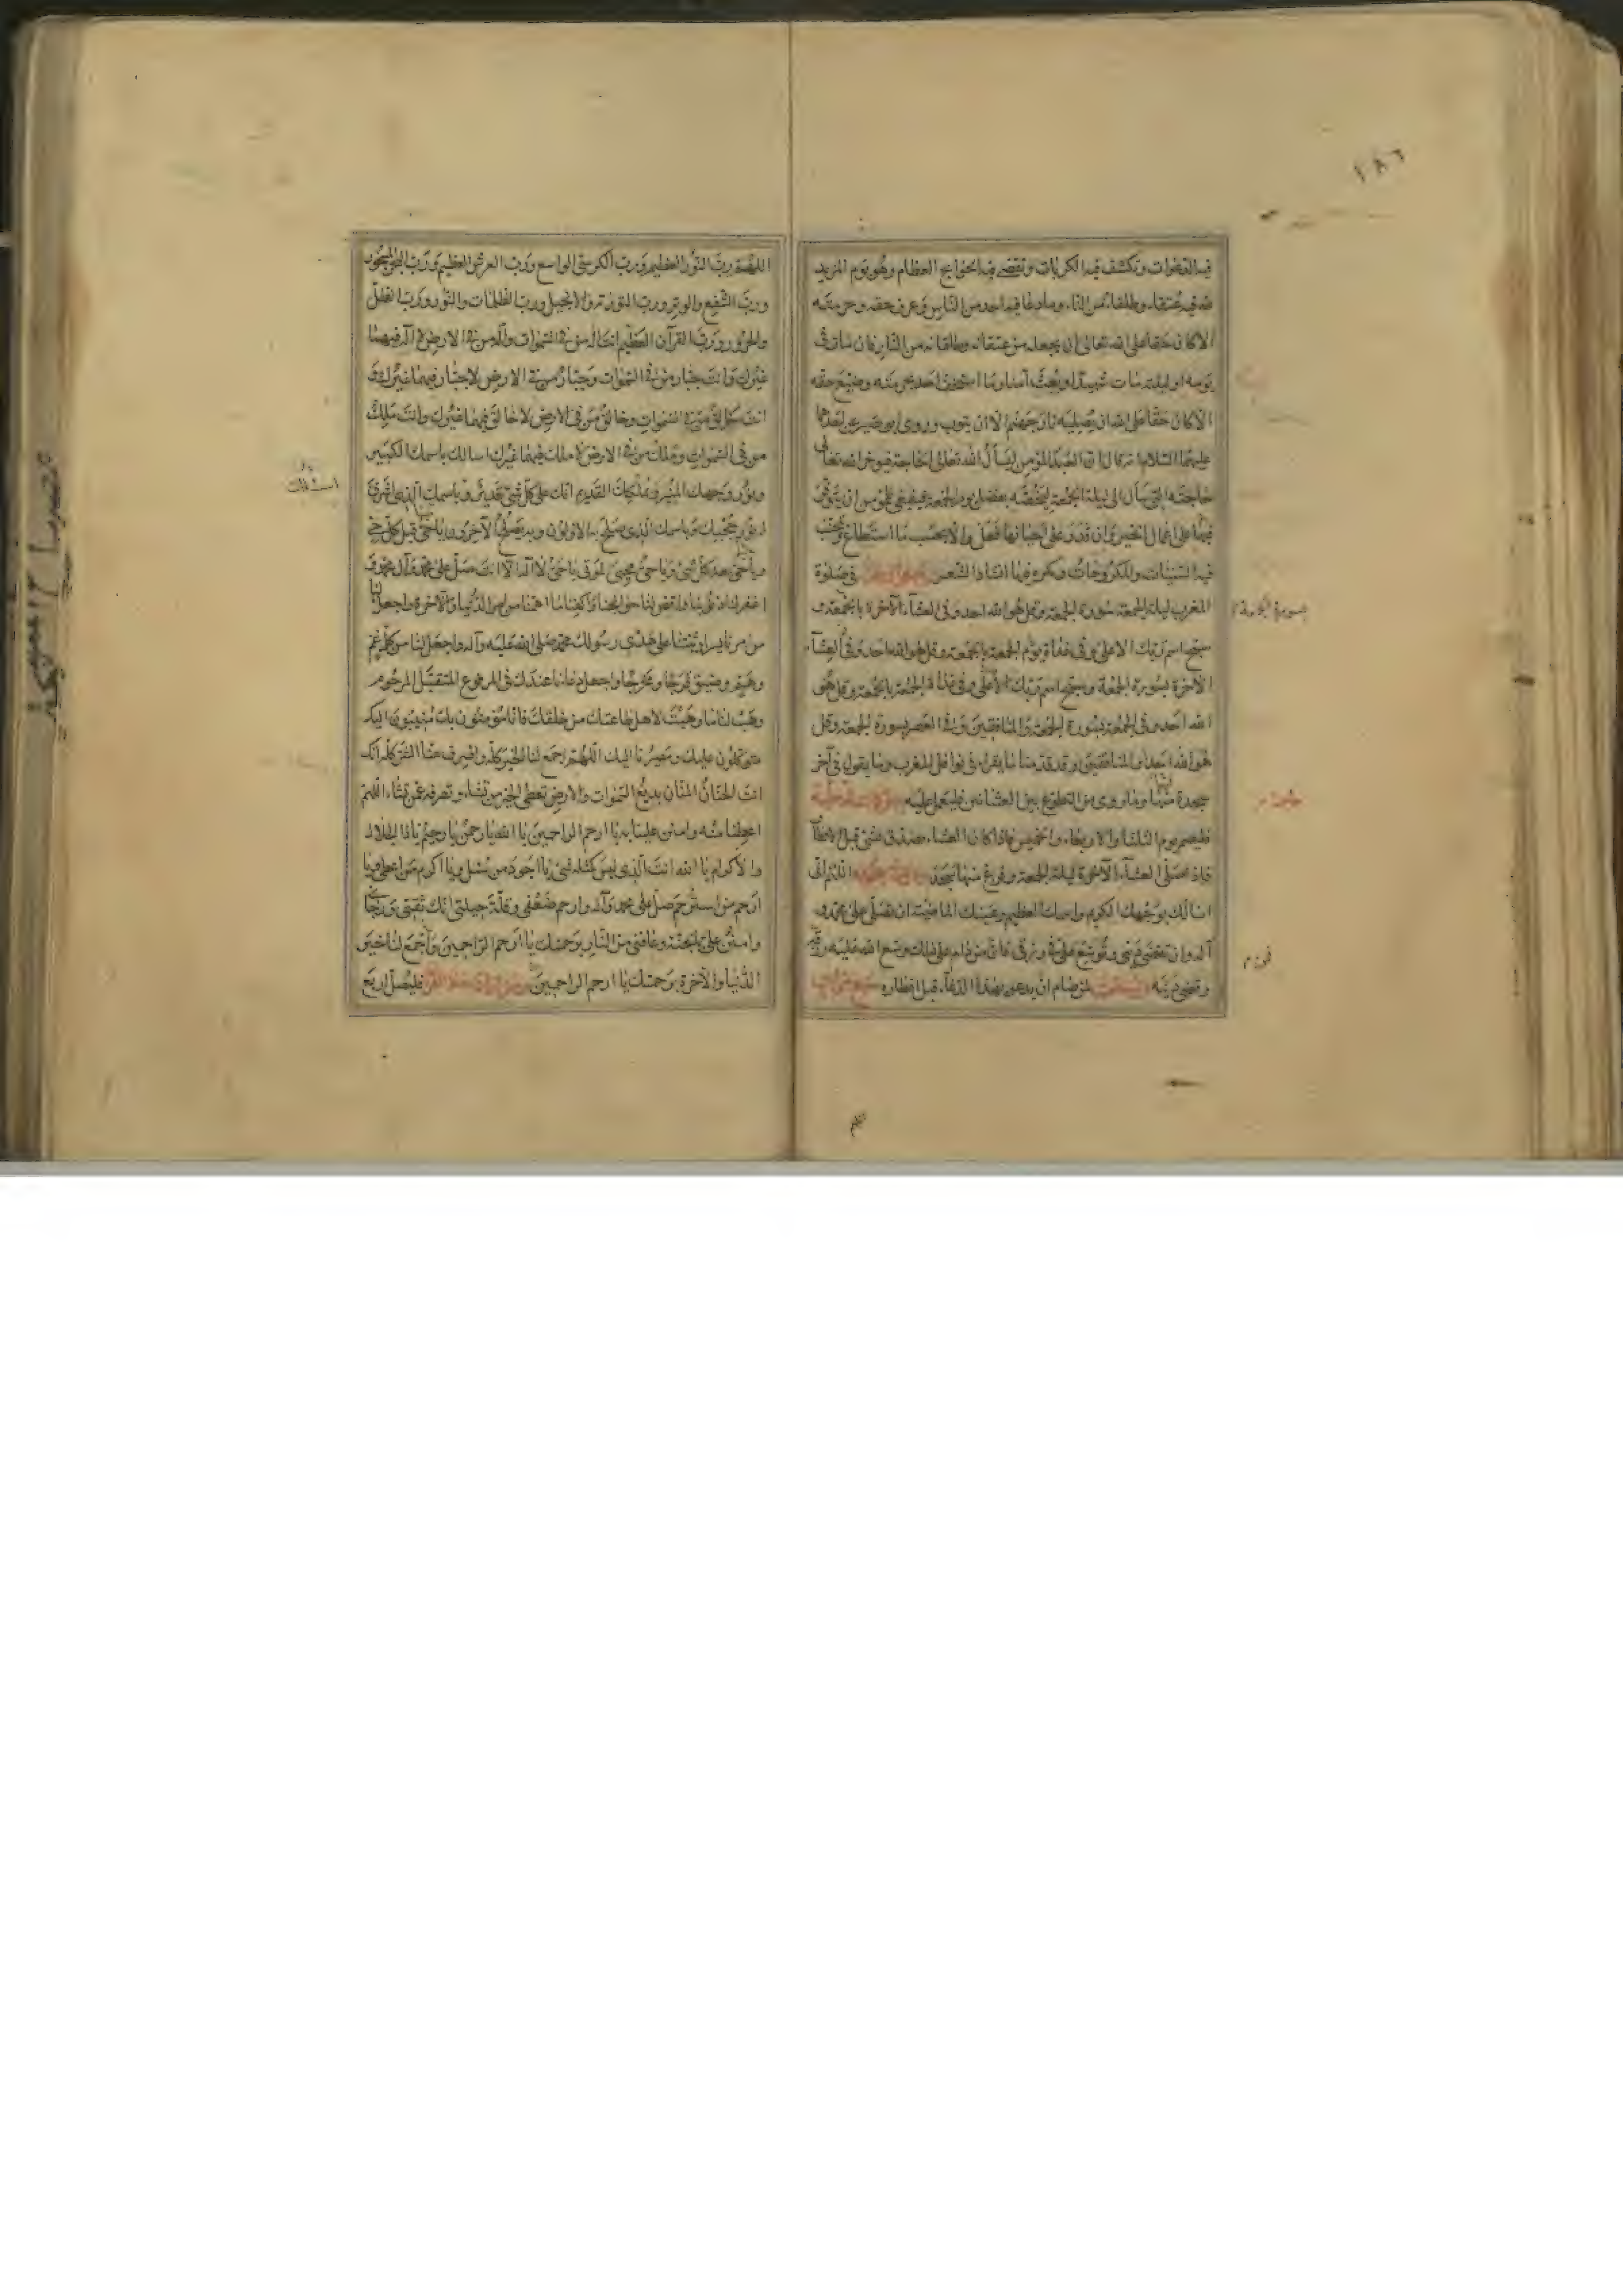 ١٨٦
فيه الدعوات وتكشف فيه الكربات وتقضى فيه الحوائج العظام وهو يوم المزيد
لله فيه عتقاء وطلقاء من النار وما دعا فيه احد من الناس وعرف حقه وحرمته
الا كان حقا على الله تعالى ان يجعله من عتقائه وطلقائه من النار فان مات في
يومه او ليلته مات شهيدا وبعث آمنا وما استخف احد بحرمته وضيع حقه
الا كان حقا على الله ان يصليه نار جهنم الا ان يتوب وروى ابو بصير عن احدهما
عليهما السلام انه قال ان العبد المؤمن ليسأل الله تعالى الحاجة فيؤخر الله تعالى
حاجته التي سأل الى ليلة الجمعة ليخصه بفضل يوم الجمعة فينبغي للمؤمن ان يتوفر
فيها على اعمال الخير وان قدر على احيائها فعل والا بحسب ما استطاع ويجتنب
فيه السيئات والمكروهات ويكره فيها انشاد الشعر في صلوة
المغرب ليلة الجمعة سورة الجمعة وقل هو الله احد وفي العشاء الآخرة بالجمعة و
سبح اسم ربك الاعلى وفي غداة يوم الجمعة بالجمعة وقل هو الله احد وفي العشاء
الآخرة بسورة الجمعة وسبح اسم ربك الأعلى وفي غداة الجمعة بالجمعة وقل هو
الله احد وفي الجمعة بسورة الجمعة والمنافقين وفي العصر بسورة الجمعة وقل
هو الله احد او المنافقين وقد قدمنا ما يقرأ في نوافل المغرب وما يقول في آخر
سجدة منها وما روى من التطوع بين العشائين فليعمل عليه
فليصم يوم الثلثا والاربعاء والخميس فاذا كان العشاء تصدق بشئ قبل الافطار
فاذا صلى العشاء الآخرة ليلة الجمعة وفرغ منها سجد اللهم انى
اسألك بوجهك الكريم واسمك العظيم وعينك الماضية ان تصلى على محمد و
آله وان تقضى دينى وتوسع على في رزقى فان من دام على ذلك وسع الله عليه رزقه
وقضى دينه لمن صام ان يدعو بهذا الدعاء قبل افطاره سبع مرات
اللهم رب النور العظيم ورب الكرسى الواسع ورب العرش العظيم ورب البحر المسجور
ورب الشفع والوتر ورب التورية والانجيل ورب الظلمات والنور ورب الظل
والحرور ورب القرآن العظيم انت اله من في السموات واله من في الارض لا اله فيهما
غيرك وانت جبار من في السموات وجبار من في الارض لا جبار فيهما غيرك و
انت خالق من في السموات وخالق من في الارض لا خالق فيهما غيرك وانت ملك
من في السموات وملك من في الارض لا ملك فيهما غيرك اسألك باسمك الكبير
ونور وجهك المنير وبملكك القديم انك على كل شئ قدير وباسمك الذى اشرق
له نور حجبك وباسمك الذى صلح به الاولون وبه يصلح الآخرون يا حى قبل كل حى
ويا حى بعد كل حى ويا حى محيى الموتى يا حى لا اله الا انت صل على محمد وآل محمد و
اغفر لنا ذنوبنا واقض لنا حوائجنا واكفنا ما اهمنا من امر الدنيا والآخرة واجعل لنا
من امرنا يسرا وثبتنا على هدى رسولك محمد صلى الله عليه وآله واجعل لنا من كل غم
وهم وضيق فرجا ومخرجا واجعل دعاءنا عندك في المرفوع المتقبل المرحوم
وهب لنا ما وهبت لاهل طاعتك من خلقك فانا مؤمنون بك منيبون اليك
متوكلون عليك ومصيرنا اليك اللهم اجمع لنا الخير كله واصرف عنا الشر كله انك
انت الحنان المنان بديع السموات والارض تعطى الخير من تشاء وتصرفه عمن تشاء اللهم
اعطنا منه وامنن علينا به يا ارحم الراحمين يا الله يا رحمن يا رحيم يا ذا الجلال
والاكرام يا الله انت الذى ليس كمثله شئ يا اجود من سئل ويا اكرم من اعطى ويا
ارحم من استرحم صل على محمد وآله وارحم ضعفى وقلة حيلتى انك ثقتى ورجائى
وامنن على بالجنة وعافنى من النار برحمتك يا ارحم الراحمين واجمع لنا خير
الدنيا والآخرة برحمتك يا ارحم الراحمين فليصل اربع